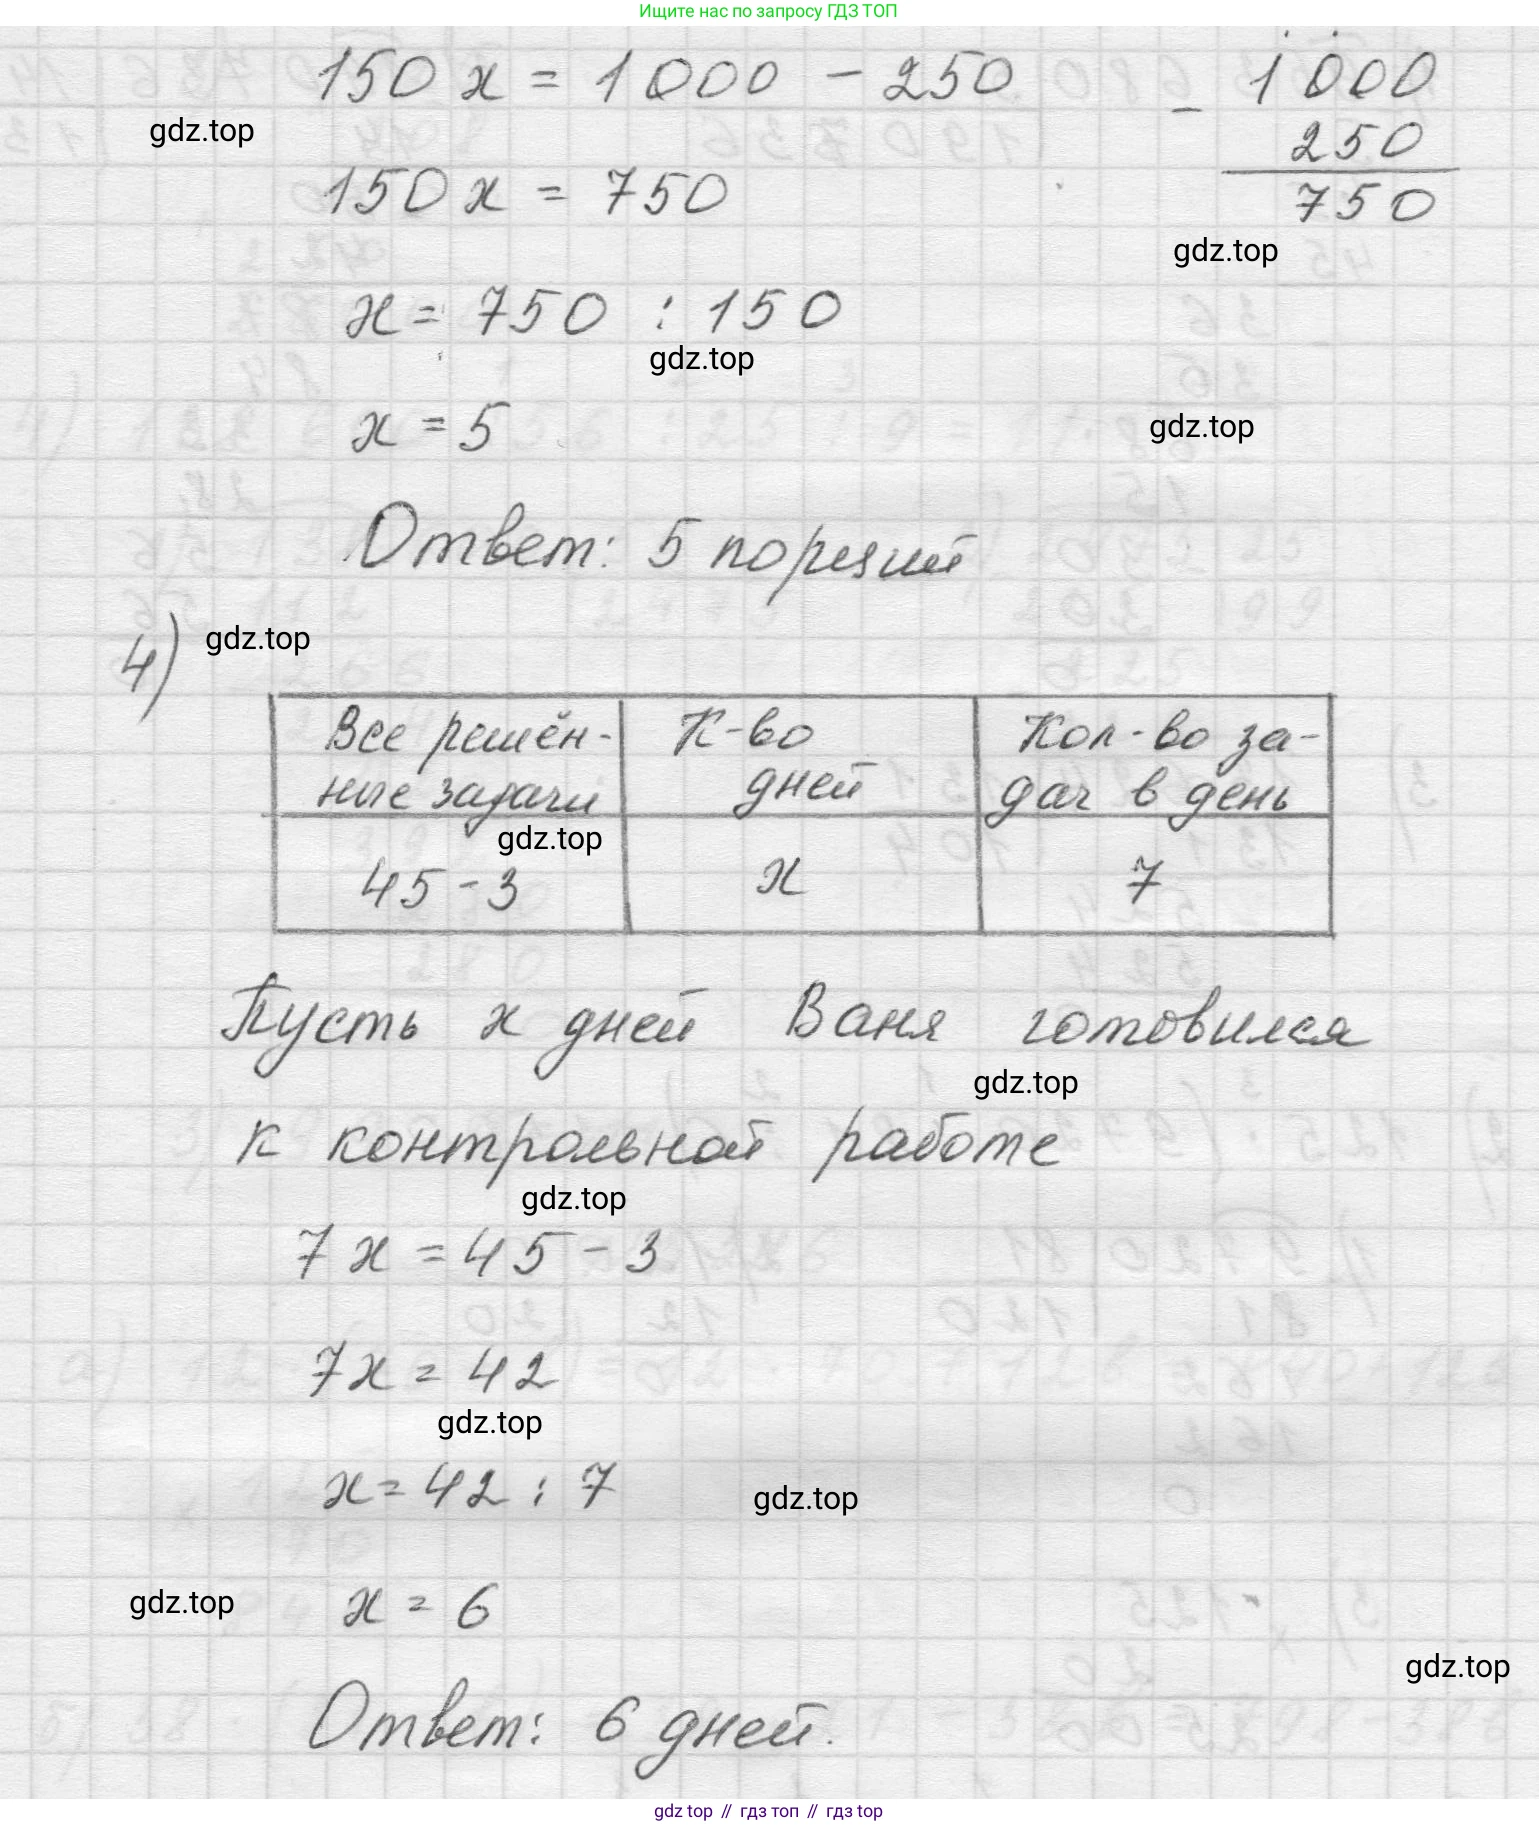 Ищите нас по запросу ГДЗ ТОП
150 x = 1000 - 250
- 1000
250
750
gdz.top
150 x = 750
gdz.top
x = 750 : 150
gdz.top
x = 5
gdz.top
Ответ: 5 порций
4)
gdz.top
Все решён-
ные задачи
К-во
дней
Кол-во за-
дач в день
gdz.top
45 - 3
x
7
Пусть x дней Ваня готовился
gdz.top
к контрольной работе
gdz.top
7x = 45 - 3
7x = 42
gdz.top
x = 42 : 7
gdz.top
gdz.top
x = 6
gdz.top
Ответ: 6 дней.
gdz top // гдз топ // гдз top